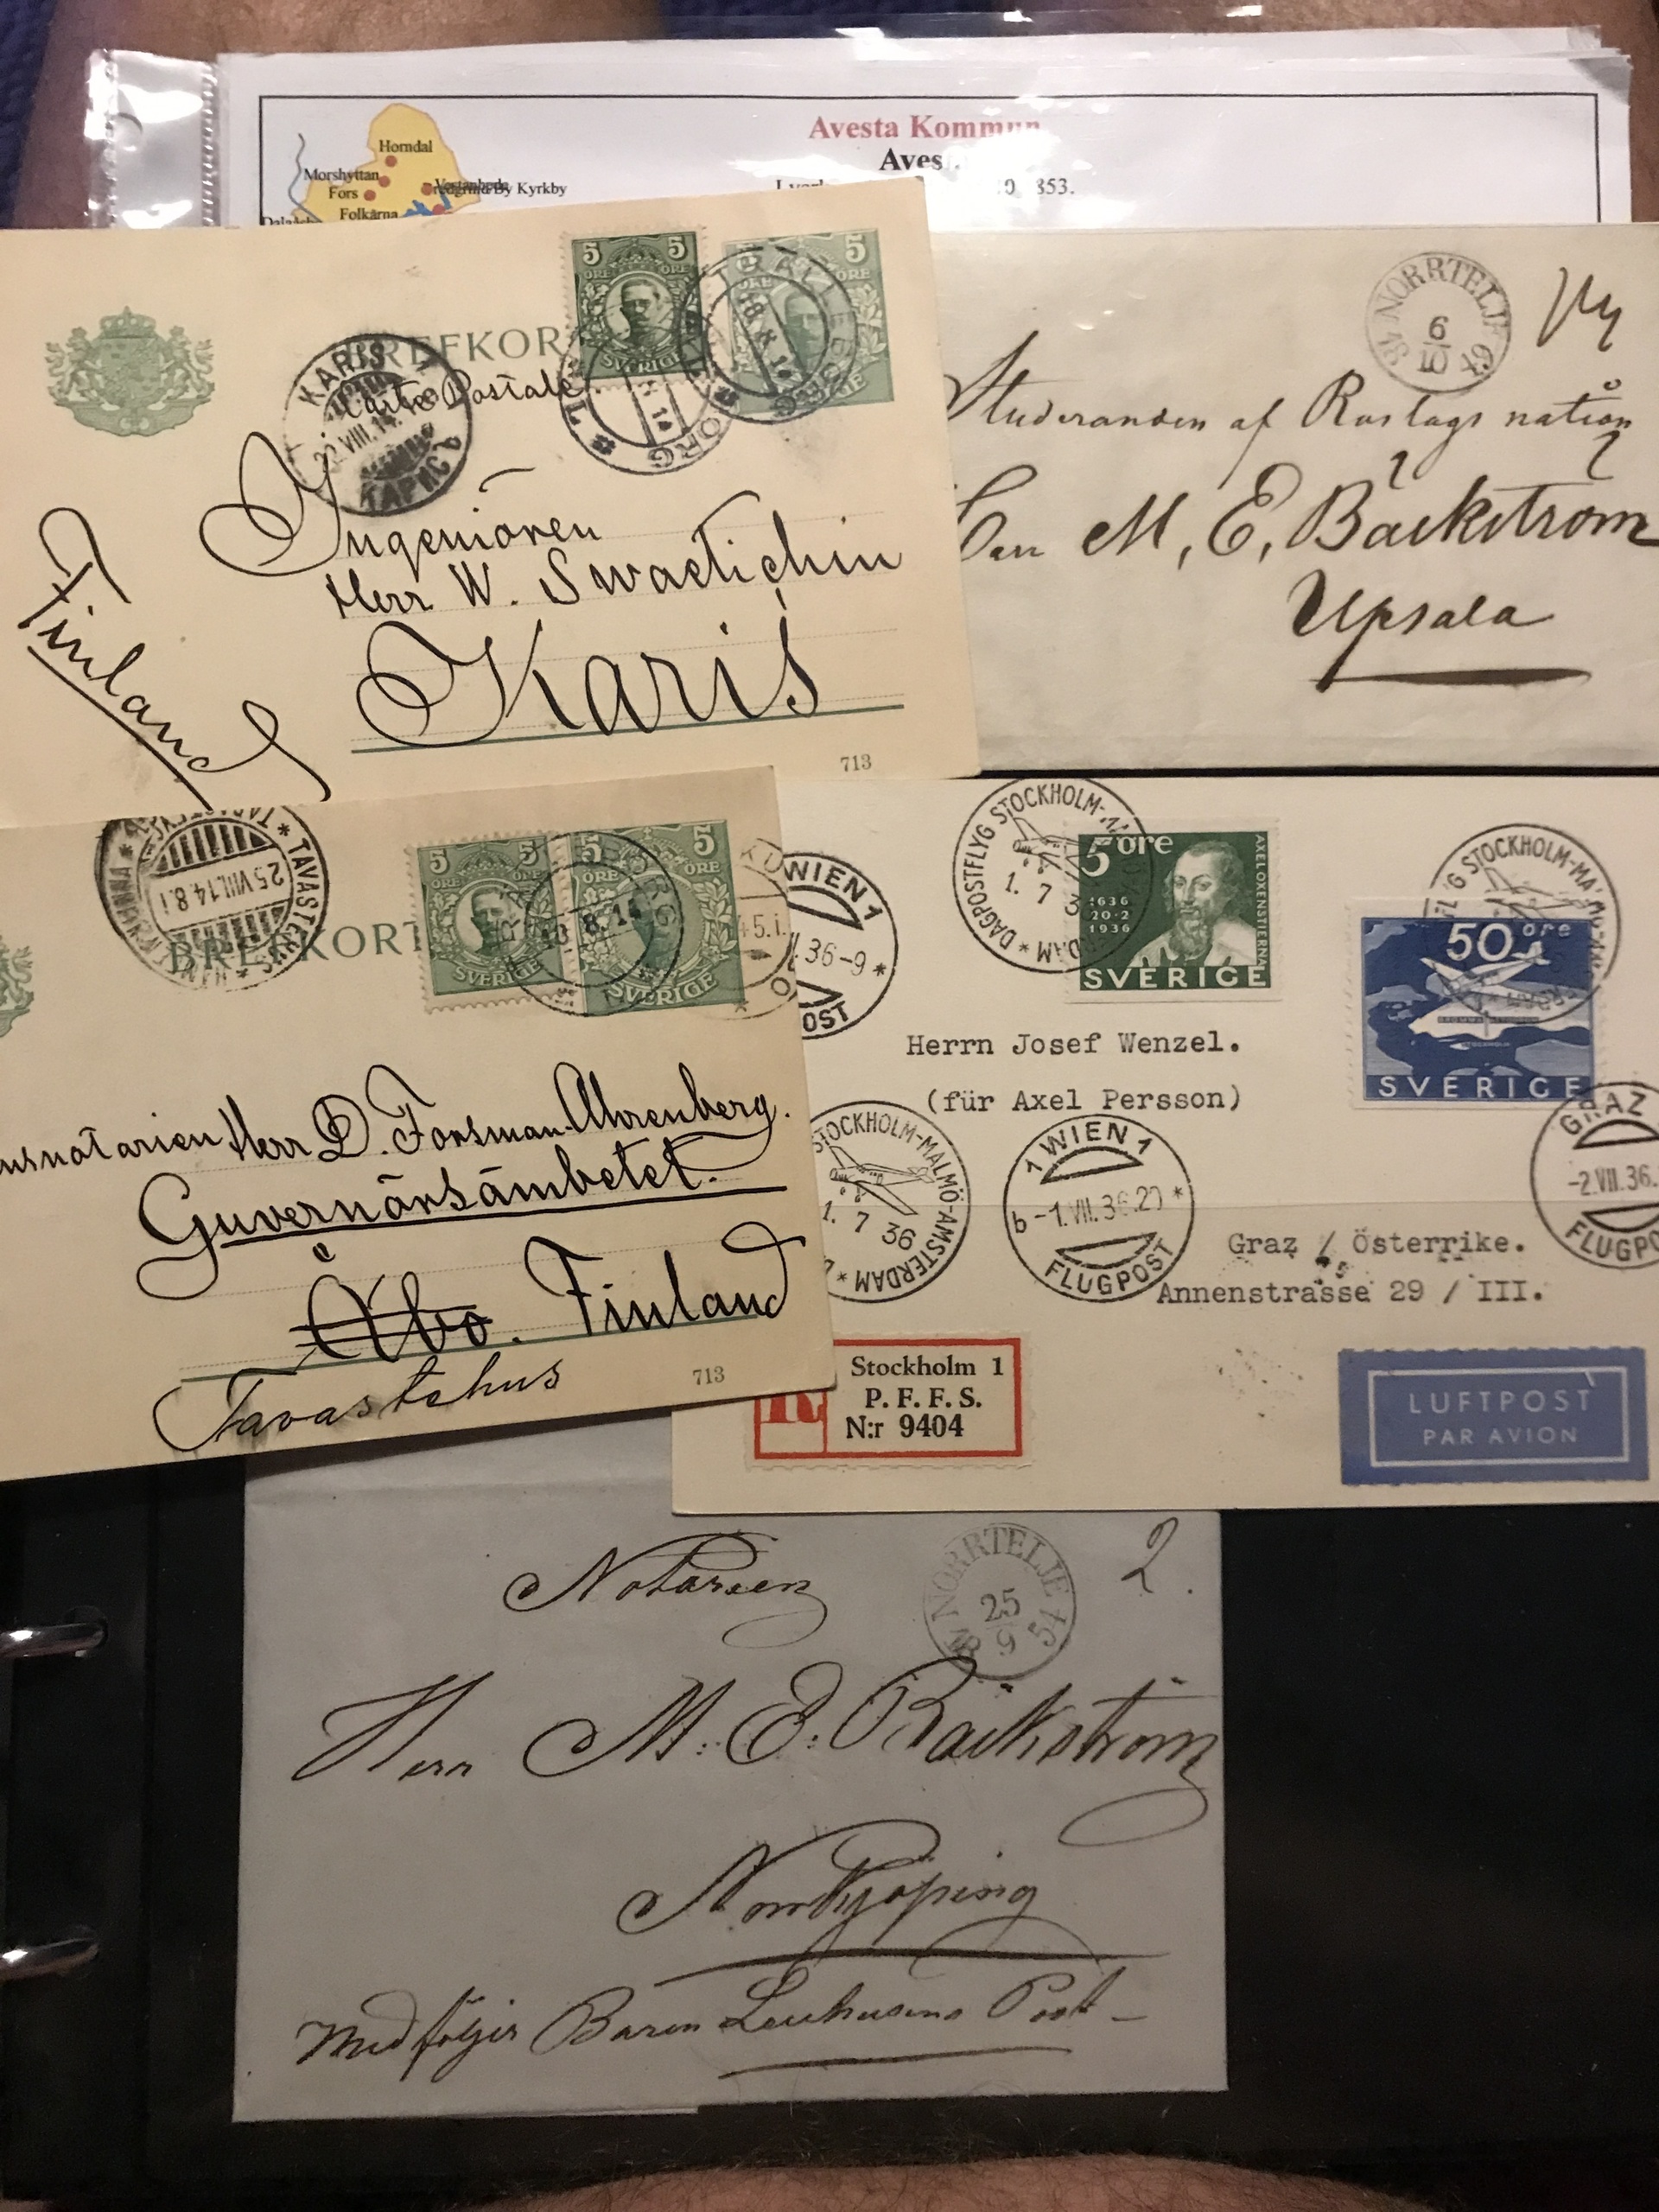 Avesta Kommun
Horndal
Morshyttan
Fors
By Kyrkby
Folkärna
853.
5 5
ÖRE ÖRE
SVERIGE
5
ÖRE
BREFKORT
Carte Postale
KARIS
VIII.14.
КАРИСЪ
Ingeniören
Herr W. Swaetichin
Karis
Finland
713
NORRTELJE
6
10 49
Studeranden af Roslags nation
Herr M, E, Bäckström
Upsala
TAVASTEHUS
25.VIII.14.8.I
BREFKORT
5 5
ÖRE ÖRE
SVERIGE
5 5
ÖRE
SVERIGE
8.14
Herr D. Forsman-Ahrenberg.
Guvernörsämbetet.
Åbo. Finland
Tavastehus
713
WIEN 1
36-9 *
DAGPOSTFLYG STOCKHOLM-
1. 7 3
5 öre
1636
20·2
1936
AXEL OXENSTIERNA
SVERIGE
STOCKHOLM-MA
50 öre
STOCKHOLM
SVERIGE
Herrn Josef Wenzel.
(für Axel Persson)
STOCKHOLM-MALMÖ-AMSTERDAM *
1. 7 36
1 WIEN 1
b -1.VII.36.20 *
FLUGPOST
GRAZ
-2.VII.36.
FLUGPO
Graz / Österrike.
Annenstrasse 29 / III.
R
Stockholm 1
P. F. F. S.
N:r 9404
LUFTPOST
PAR AVION
Notarien
NORRTELJE
25
9 54
2.
Herr M. E. Bäckström
Norrkjöping
Medföljer Baron Leuhusens Post